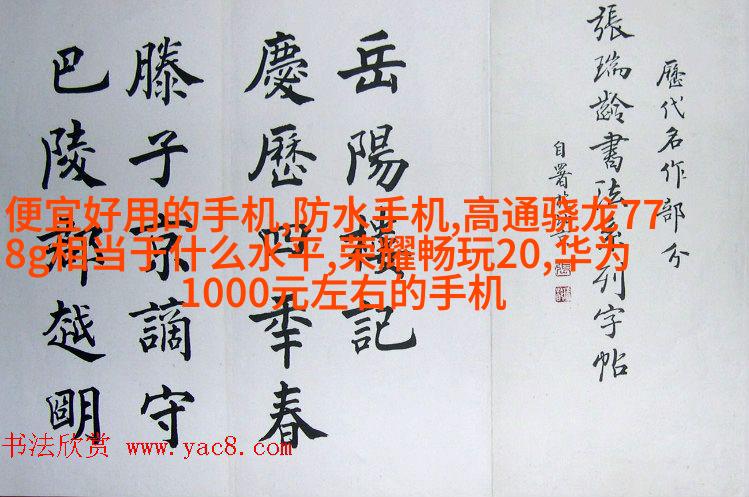 歷代名作部分
張瑞齡書法系列字帖
自署
岳陽樓記
慶歷四秊春
滕子京謫守
巴陵郡越明
便宜好用的手机,防水手机,高通骁龙77
8g相当于什么水平,荣耀畅玩20,华为
1000元左右的手机
书法欣赏 www.yac8.com